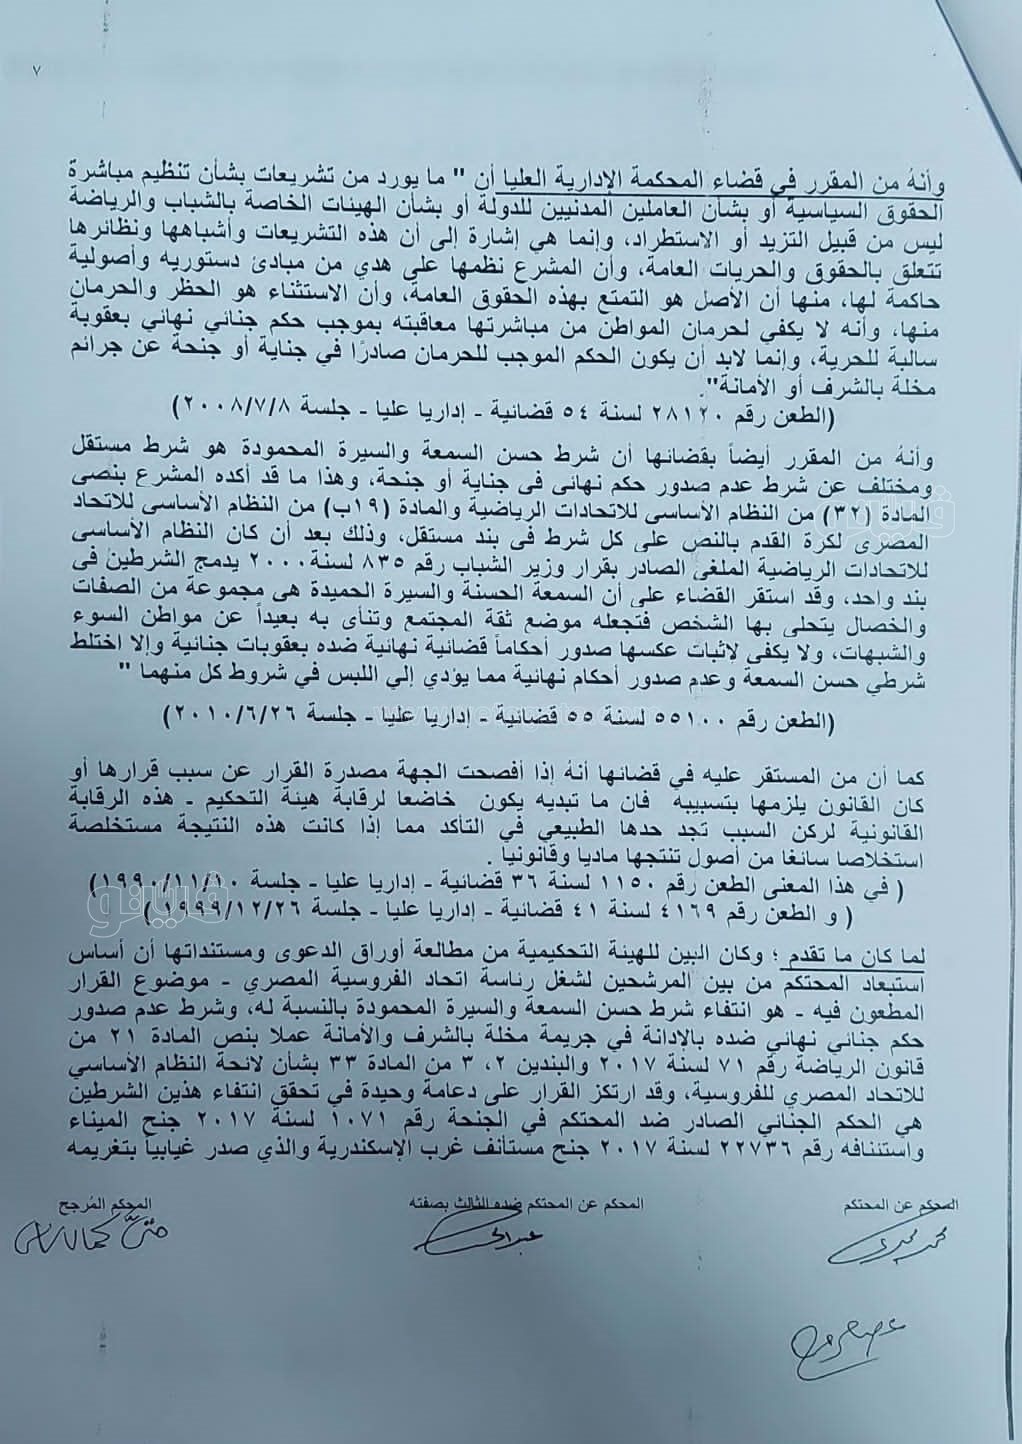 ٧
وأنهُ من المقرر في قضاء المحكمة الإدارية العليا أن " ما يورد من تشريعات بشأن تنظيم مباشرة
الحقوق السياسية أو بشأن العاملين المدنيين للدولة أو بشأن الهيئات الخاصة بالشباب والرياضة
ليس من قبيل التزيد أو الاستطراد، وإنما هي إشارة إلى أن هذه التشريعات وأشباهها ونظائرها
تتعلق بالحقوق والحريات العامة، وأن المشرع نظمها على هدي من مبادئ دستوريه وأصولية
حاكمة لها، منها أن الأصل هو التمتع بهذه الحقوق العامة، وأن الاستثناء هو الحظر والحرمان
منها، وأنه لا يكفي لحرمان المواطن من مباشرتها معاقبته بموجب حكم جنائي نهائي بعقوبة
سالبة للحرية، وإنما لابد أن يكون الحكم الموجب للحرمان صادرًا في جناية أو جنحة عن جرائم
مخلة بالشرف أو الأمانة".
(الطعن رقم ٢٨١٢٠ لسنة ٥٤ قضائية - إداريا عليا - جلسة ٢٠٠٨/٧/٨)
وأنهُ من المقرر أيضاً بقضائها أن شرط حسن السمعة والسيرة المحمودة هو شرط مستقل
ومختلف عن شرط عدم صدور حكم نهائى فى جناية أو جنحة، وهذا ما قد أكده المشرع بنصى
المادة (٣٢) من النظام الأساسى للاتحادات الرياضية والمادة (١٩ب) من النظام الأساسى للاتحاد
المصرى لكرة القدم بالنص على كل شرط فى بند مستقل، وذلك بعد أن كان النظام الأساسى
للاتحادات الرياضية الملغى الصادر بقرار وزير الشباب رقم ٨٣٥ لسنة ٢٠٠٠ يدمج الشرطين فى
بند واحد، وقد استقر القضاء على أن السمعة الحسنة والسيرة الحميدة هى مجموعة من الصفات
والخصال يتحلى بها الشخص فتجعله موضع ثقة المجتمع وتنأى به بعيداً عن مواطن السوء
والشبهات، ولا يكفى لاثبات عكسها صدور أحكاماً قضائية نهائية ضده بعقوبات جنائية وإلا اختلط
شرطي حسن السمعة وعدم صدور أحكام نهائية مما يؤدي إلي اللبس في شروط كل منهما "
(الطعن رقم ٥٥١٠٠ لسنة ٥٥ قضائية - إداريا عليا - جلسة ٢٠١٠/٦/٢٦)
كما أن من المستقر عليه في قضائها أنهُ إذا أفصحت الجهة مصدرة القرار عن سبب قرارها أو
كان القانون يلزمها بتسبيبه فان ما تبديه يكون خاضعا لرقابة هيئة التحكيم - هذه الرقابة
القانونية لركن السبب تجد حدها الطبيعي في التأكد مما إذا كانت هذه النتيجة مستخلصة
استخلاصا سائغا من أصول تنتجها ماديا وقانونيا .
( في هذا المعنى الطعن رقم ١١٥٠ لسنة ٣٦ قضائية - إداريا عليا - جلسة ١٩٩٠/١١/١٠)
( و الطعن رقم ٤١٦٩ لسنة ٤١ قضائية - إداريا عليا - جلسة ١٩٩٩/١٢/٢٦ )
لما كان ما تقدم ؛ وكان البين للهيئة التحكيمية من مطالعة أوراق الدعوى ومستنداتها أن أساس
استبعاد المحتكم من بين المرشحين لشغل رئاسة اتحاد الفروسية المصري - موضوع القرار
المطعون فيه - هو انتفاء شرط حسن السمعة والسيرة المحمودة بالنسبة له، وشرط عدم صدور
حكم جنائي نهائي ضده بالإدانة في جريمة مخلة بالشرف والأمانة عملا بنص المادة ٢١ من
قانون الرياضة رقم ٧١ لسنة ٢٠١٧ والبندين ٢، ٣ من المادة ٣٣ بشأن لائحة النظام الأساسي
للاتحاد المصري للفروسية، وقد ارتكز القرار على دعامة وحيدة في تحقق انتفاء هذين الشرطين
هي الحكم الجنائي الصادر ضد المحتكم في الجنحة رقم ١٠٧١ لسنة ٢٠١٧ جنح الميناء
واستئنافه رقم ٢٢٧٣٦ لسنة ٢٠١٧ جنح مستأنف غرب الإسكندرية والذي صدر غيابياً بتغريمه
المحكم عن المحتكم
المحكم عن المحتكم ضده الثالث بصفته
المحكم المُرجح
فيتو